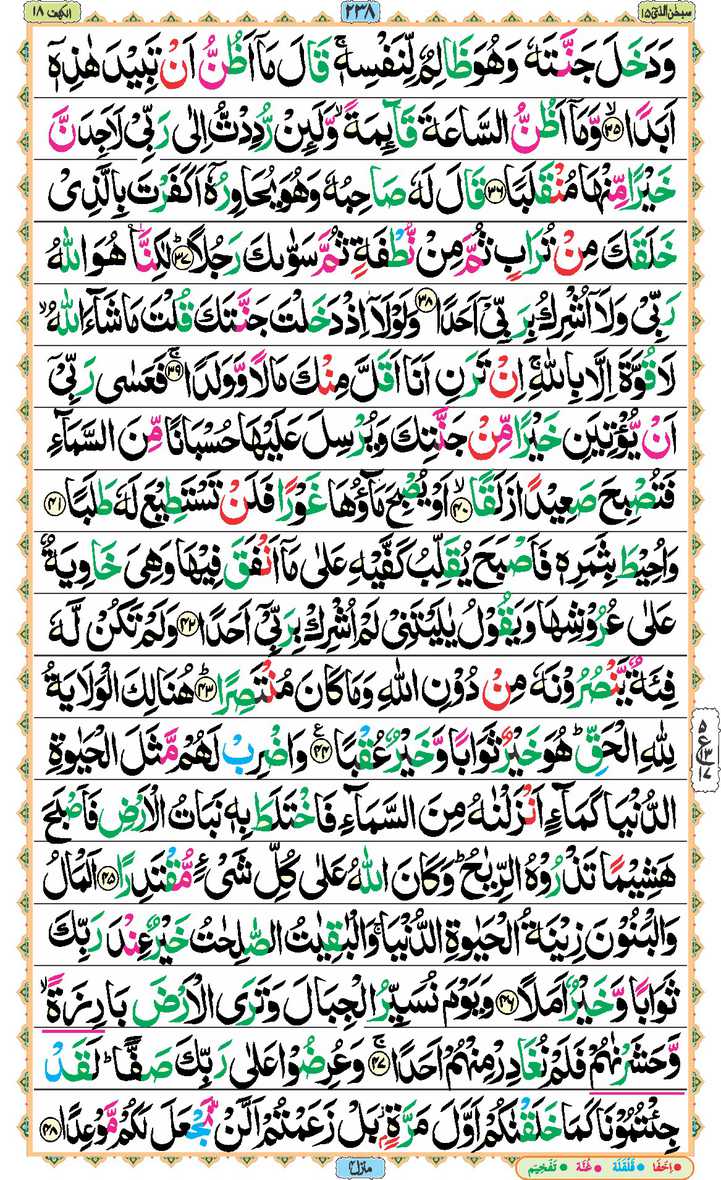 سبحٰن الذیٓ ۱۵ ۲۳۸ الکہف ۱۸
وَدَخَلَ جَنَّتَهٗ وَهُوَ ظَالِمٌ لِّنَفْسِهٖ ۚ قَالَ مَاۤ اَظُنُّ اَنْ تَبِيْدَ هٰذِهٖۤ
اَبَدًا ۙ﴿۳۵﴾ وَّمَاۤ اَظُنُّ السَّاعَةَ قَآئِمَةً ۙ وَّلَئِنْ رُّدِدْتُّ اِلٰى رَبِّيْ لَاَجِدَنَّ
خَيْرًا مِّنْهَا مُنْقَلَبًا ﴿۳۶﴾ قَالَ لَهٗ صَاحِبُهٗ وَهُوَ يُحَاوِرُهٗۤ اَكَفَرْتَ بِالَّذِيْ
خَلَقَكَ مِنْ تُرَابٍ ثُمَّ مِنْ نُّطْفَةٍ ثُمَّ سَوّٰىكَ رَجُلًا ؕ﴿۳۷﴾ لٰكِنَّا۠ هُوَ اللّٰهُ
رَبِّيْ وَلَاۤ اُشْرِكُ بِرَبِّيْۤ اَحَدًا ﴿۳۸﴾ وَلَوْلَاۤ اِذْ دَخَلْتَ جَنَّتَكَ قُلْتَ مَا شَآءَ اللّٰهُ ۙ
لَا قُوَّةَ اِلَّا بِاللّٰهِ ۚ اِنْ تَرَنِ اَنَا اَقَلَّ مِنْكَ مَالًا وَّوَلَدًا ۚ﴿۳۹﴾ فَعَسٰى رَبِّيْۤ
اَنْ يُّؤْتِيَنِ خَيْرًا مِّنْ جَنَّتِكَ وَيُرْسِلَ عَلَيْهَا حُسْبَانًا مِّنَ السَّمَآءِ
فَتُصْبِحَ صَعِيْدًا زَلَقًا ۙ﴿۴۰﴾ اَوْ يُصْبِحَ مَآؤُهَا غَوْرًا فَلَنْ تَسْتَطِيْعَ لَهٗ طَلَبًا ﴿۴۱﴾
وَاُحِيْطَ بِثَمَرِهٖ فَاَصْبَحَ يُقَلِّبُ كَفَّيْهِ عَلٰى مَاۤ اَنْفَقَ فِيْهَا وَهِيَ خَاوِيَةٌ
عَلٰى عُرُوْشِهَا وَيَقُوْلُ يٰلَيْتَنِيْ لَمْ اُشْرِكْ بِرَبِّيْۤ اَحَدًا ﴿۴۲﴾ وَلَمْ تَكُنْ لَّهٗ
فِئَةٌ يَّنْصُرُوْنَهٗ مِنْ دُوْنِ اللّٰهِ وَمَا كَانَ مُنْتَصِرًا ؕ﴿۴۳﴾ هُنَالِكَ الْوَلَايَةُ
لِلّٰهِ الْحَقِّ ؕ هُوَ خَيْرٌ ثَوَابًا وَّخَيْرٌ عُقْبًا ﴿۴۴﴾ۧ وَاضْرِبْ لَهُمْ مَّثَلَ الْحَيٰوةِ
الدُّنْيَا كَمَآءٍ اَنْزَلْنٰهُ مِنَ السَّمَآءِ فَاخْتَلَطَ بِهٖ نَبَاتُ الْاَرْضِ فَاَصْبَحَ
هَشِيْمًا تَذْرُوْهُ الرِّيٰحُ ؕ وَكَانَ اللّٰهُ عَلٰى كُلِّ شَيْءٍ مُّقْتَدِرًا ﴿۴۵﴾ اَلْمَالُ
وَالْبَنُوْنَ زِيْنَةُ الْحَيٰوةِ الدُّنْيَا ۚ وَالْبٰقِيٰتُ الصّٰلِحٰتُ خَيْرٌ عِنْدَ رَبِّكَ
ثَوَابًا وَّخَيْرٌ اَمَلًا ﴿۴۶﴾ وَيَوْمَ نُسَيِّرُ الْجِبَالَ وَتَرَى الْاَرْضَ بَارِزَةً ۙ
وَّحَشَرْنٰهُمْ فَلَمْ نُغَادِرْ مِنْهُمْ اَحَدًا ۚ﴿۴۷﴾ وَعُرِضُوْا عَلٰى رَبِّكَ صَفًّا ؕ لَقَدْ
جِئْتُمُوْنَا كَمَا خَلَقْنٰكُمْ اَوَّلَ مَرَّةٍۭ ؗ بَلْ زَعَمْتُمْ اَلَّنْ نَّجْعَلَ لَكُمْ مَّوْعِدًا ﴿۴۸﴾
منزل۴
اِخفَا قَلْقَلَه غُنَّه تَفْخِيم